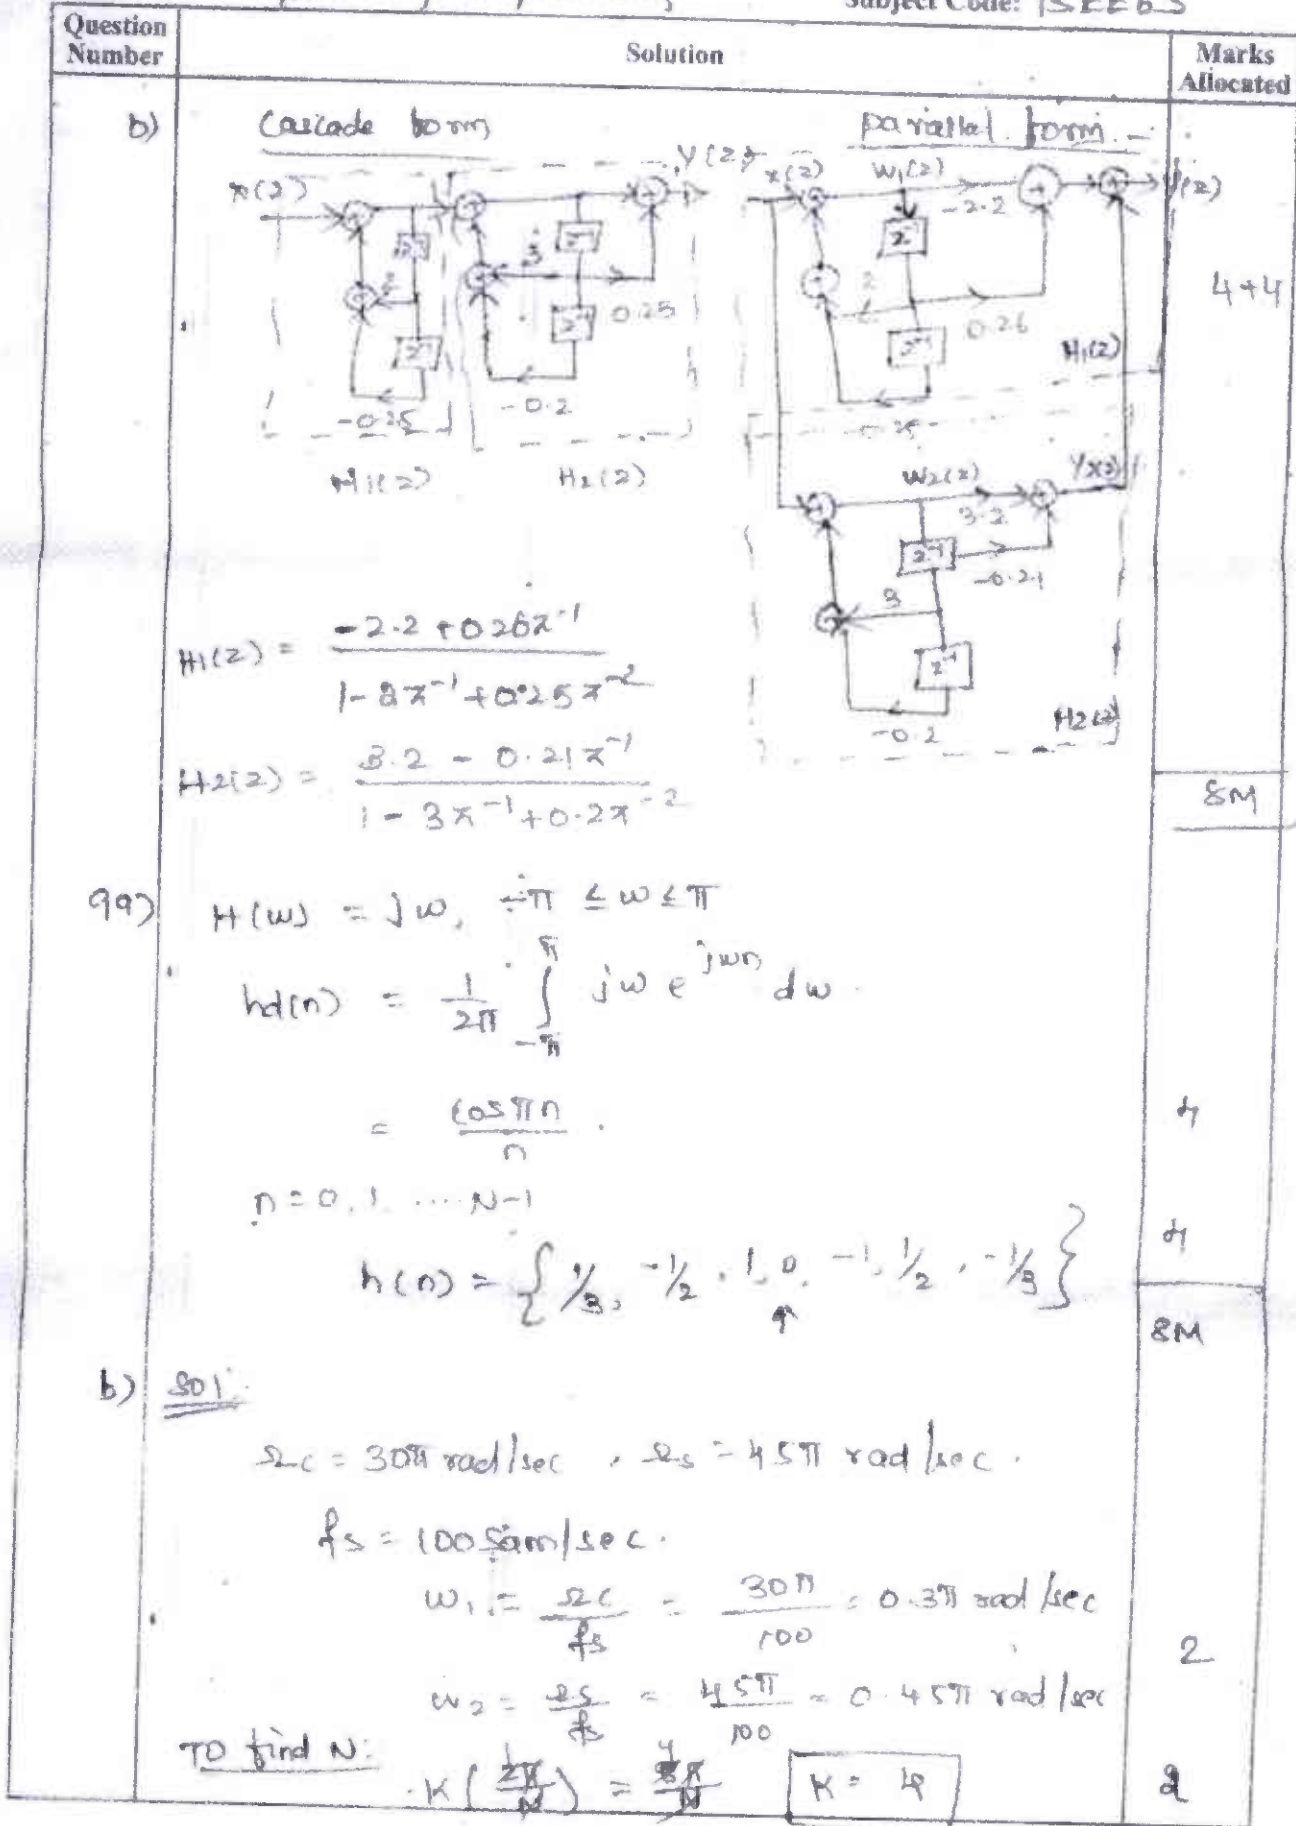 Subject Code: 15EE63
Question Number
Solution
Marks Allocated
b)
Cascade form
parallel form
x(z)
Y(z)
x(z)
W1(z)
Y(z)
-2.2
z-1
z-1
z-1
2
3
2
4+4
z-1
z-1
0.25
z-1
0.26
H1(z)
-0.25
-0.2
-0.25
H1(z)
H2(z)
W2(z)
Y2(z)
3.2
z-1
-0.21
3
z-1
-0.2
H2(z)
H1(z) = -2.2 + 0.26z-1
1-2z-1+0.25z-2
H2(z) = 3.2 - 0.21z-1
1-3z-1+0.2z-2
8M
9a)
H(w) = jw, -π ≤ w ≤ π
hd(n) = 1/2π ∫ -π π jw e^jwn dw.
= cosπn / n .
4
n=0,1, .... N-1
h(n) = { 1/3, -1/2, 1, 0, -1, 1/2, -1/3 }
↑
4
8M
b) Sol:
Ωc = 30π rad/sec , Ωs = 45π rad/sec.
fs = 100 sam/sec.
w1 = Ωc/fs = 30π/100 = 0.3π rad/sec
2
w2 = Ωs/fs = 45π/100 = 0.45π rad/sec
To find N:
K(2π/N) = 8π/N
K = 4
2